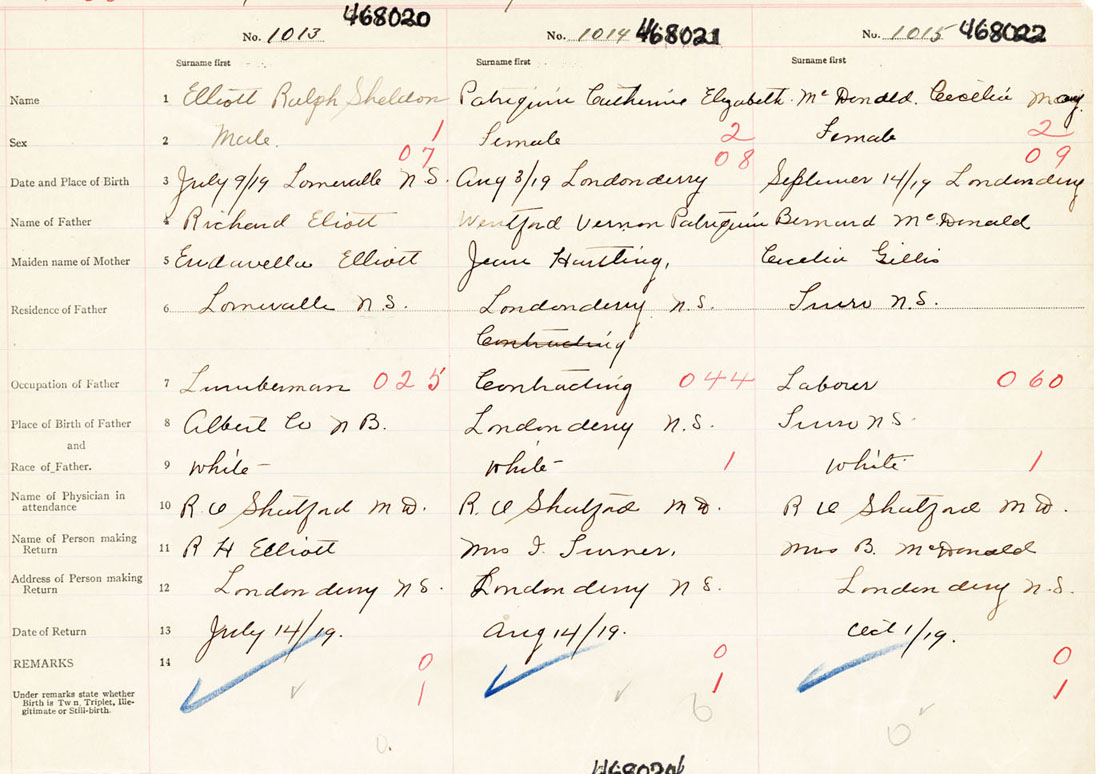 468020 468021 468022
No. 1013 No. 1014 No. 1015
Surname first Surname first Surname first
Name 1 Elliott Ralph Sheldon Patriquin Catherine Elizabeth McDonald. Cecelia Mary
Sex 2 Male. 1 Female 2 Female 2
07 08 09
Date and Place of Birth 3 July 9/19 Lornevalle N S. Aug 3/19 Londonderry Septemer 14/19 Londonderry
Name of Father 4 Richard Eliott Wentford Vernon Patriquin Bernard McDonald
Maiden name of Mother 5 Elliott Jean Hartling, Cecelia Gillis
Residence of Father 6 Lornevalle N.S. Londonderry N.S. Truro N.S.
Contracting
Occupation of Father 7 Lumberman 025 Contracting 044 Labour 060
Place of Birth of Father 8 Albert Co N B. Londonderry N.S. Truro N S
and
Race of Father. 9 White White 1 White 1
Name of Physician in
attendance 10 R. Shatford M D. R. Shatford M D. R Shatford M D.
Name of Person making
Return 11 R H Elliott Mrs Turner, Mrs B. McDonald
Address of Person making
Return 12 Londonderry N S. Londonderry N S. Londonderry N.S.
Date of Return 13 July 14/19. Aug 14/19. Oct 1/19.
REMARKS 14 0 0 0
Under remarks state whether
Birth is Twin, Triplet, Ille-
gitimate or Still-birth. 1 1 1